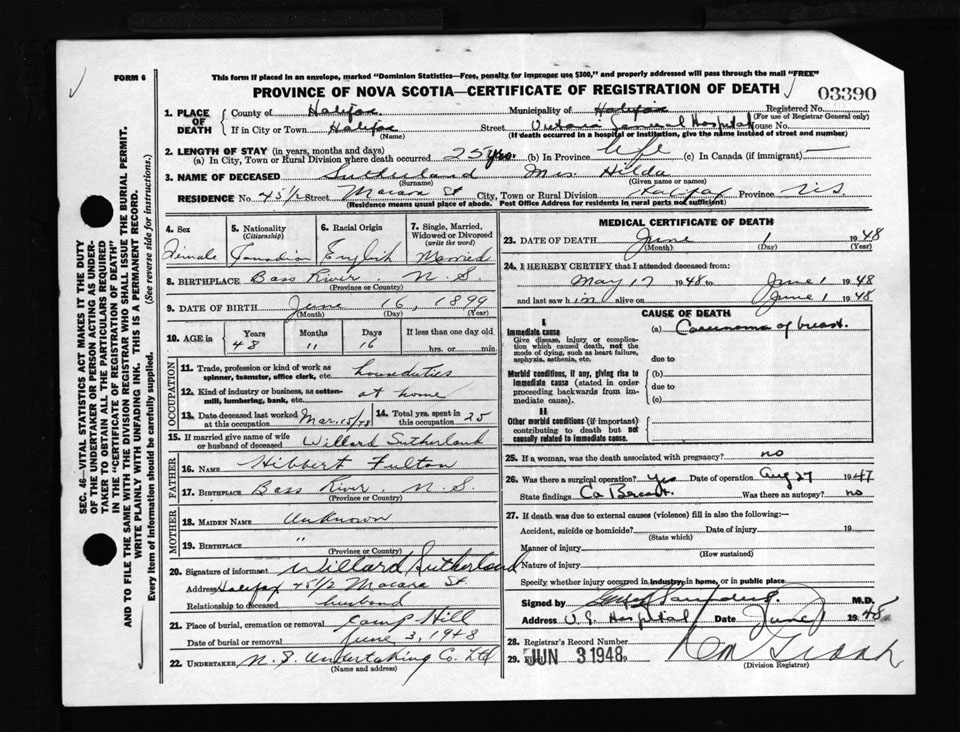 FORM 6
This form if placed in an envelope, marked "Dominion Statistics—Free, penalty for improper use $300," and properly addressed will pass through the mail "FREE"
PROVINCE OF NOVA SCOTIA—CERTIFICATE OF REGISTRATION OF DEATH
03390
1. PLACE OF DEATH { County of Halifax Municipality of Halifax Registered No.
(For use of Registrar-General only)
If in City or Town Halifax (Name) Street Victoria General Hospital House No.
(If death occurred in a hospital or institution, give the name instead of street and number)
2. LENGTH OF STAY (in years, months and days)
(a) In City, Town or Rural Division where death occurred 25 yrs. (b) In Province life (c) In Canada (if immigrant) —
3. NAME OF DECEASED Sutherland Mrs. Hilda
(Surname) (Given name or names)
RESIDENCE No. 45 1/2 Street Macara St City, Town or Rural Division Halifax Province N.S.
(Residence means usual place of abode. Post Office Address for residents in rural parts not sufficient)
4. Sex Female
5. Nationality (Citizenship) Canadian
6. Racial Origin English
7. Single, Married, Widowed or Divorced (write the word) Married
8. BIRTHPLACE Bass River, N.S.
(Province or Country)
9. DATE OF BIRTH June 16, 1899
(Month) (Day) (Year)
10. AGE in Years Months Days If less than one day old
48 11 16 hrs. or min.
OCCUPATION
11. Trade, profession or kind of work as spinner, teamster, office clerk, etc. houseduties
12. Kind of industry or business, as cotton-mill, lumbering, bank, etc. at home
13. Date deceased last worked at this occupation Mar. 15/48
14. Total yrs. spent in 25
15. If married give name of wife or husband of deceased Willard Sutherland
FATHER
16. NAME Hibbert Fulton
17. BIRTHPLACE Bass River, N.S.
(Province or Country)
MOTHER
18. MAIDEN NAME Unknown
19. BIRTHPLACE "
(Province or Country)
20. Signature of informant Willard Sutherland
Address Halifax 45 1/2 Macara St
Relationship to deceased husband
21. Place of burial, cremation or removal Camp Hill
Date of burial or removal June 3, 1948
22. UNDERTAKER N.S. Undertaking Co. Ltd
(Name and address)
MEDICAL CERTIFICATE OF DEATH
23. DATE OF DEATH June 1 1948
(Month) (Day) (Year)
24. I HEREBY CERTIFY that I attended deceased from:
May 17 1948 to June 1 1948
and last saw h im alive on June 1 1948
CAUSE OF DEATH
I.
Immediate cause (a) Carcinoma of breast.
Give disease, injury or complication which caused death, not the mode of dying, such as heart failure, asphyxia, asthenia, etc.
due to
Morbid conditions, if any, giving rise to immediate cause (stated in order proceeding backwards from immediate cause).
(b)
due to
(c)
II
Other morbid conditions (if important) contributing to death but not causally related to immediate cause.
25. If a woman, was the death associated with pregnancy? no
26. Was there a surgical operation? yes Date of operation Aug 27 1947
State findings Ca Breast. Was there an autopsy? no
27. If death was due to external causes (violence) fill in also the following:—
Accident, suicide or homicide? Date of injury 19
(State which)
Manner of injury
(How sustained)
Nature of injury
Specify whether injury occurred in industry, in home, or in public place
Signed by Saunders M.D.
Address V.G. Hospital Date June 1948
28. Registrar's Record Number
29. Filed JUN 3 1948
(Division Registrar)
SEC. 46—VITAL STATISTICS ACT MAKES IT THE DUTY
OF THE UNDERTAKER OR PERSON ACTING AS UNDER-
TAKER TO OBTAIN ALL THE PARTICULARS REQUIRED
IN THE "CERTIFICATE OF REGISTRATION OF DEATH"
AND TO FILE THE SAME WITH THE DIVISION REGISTRAR WHO SHALL ISSUE THE BURIAL PERMIT.
WRITE PLAINLY WITH UNFADING INK. THIS IS A PERMANENT RECORD.
Every item of information should be carefully supplied. (See reverse side for instructions.)